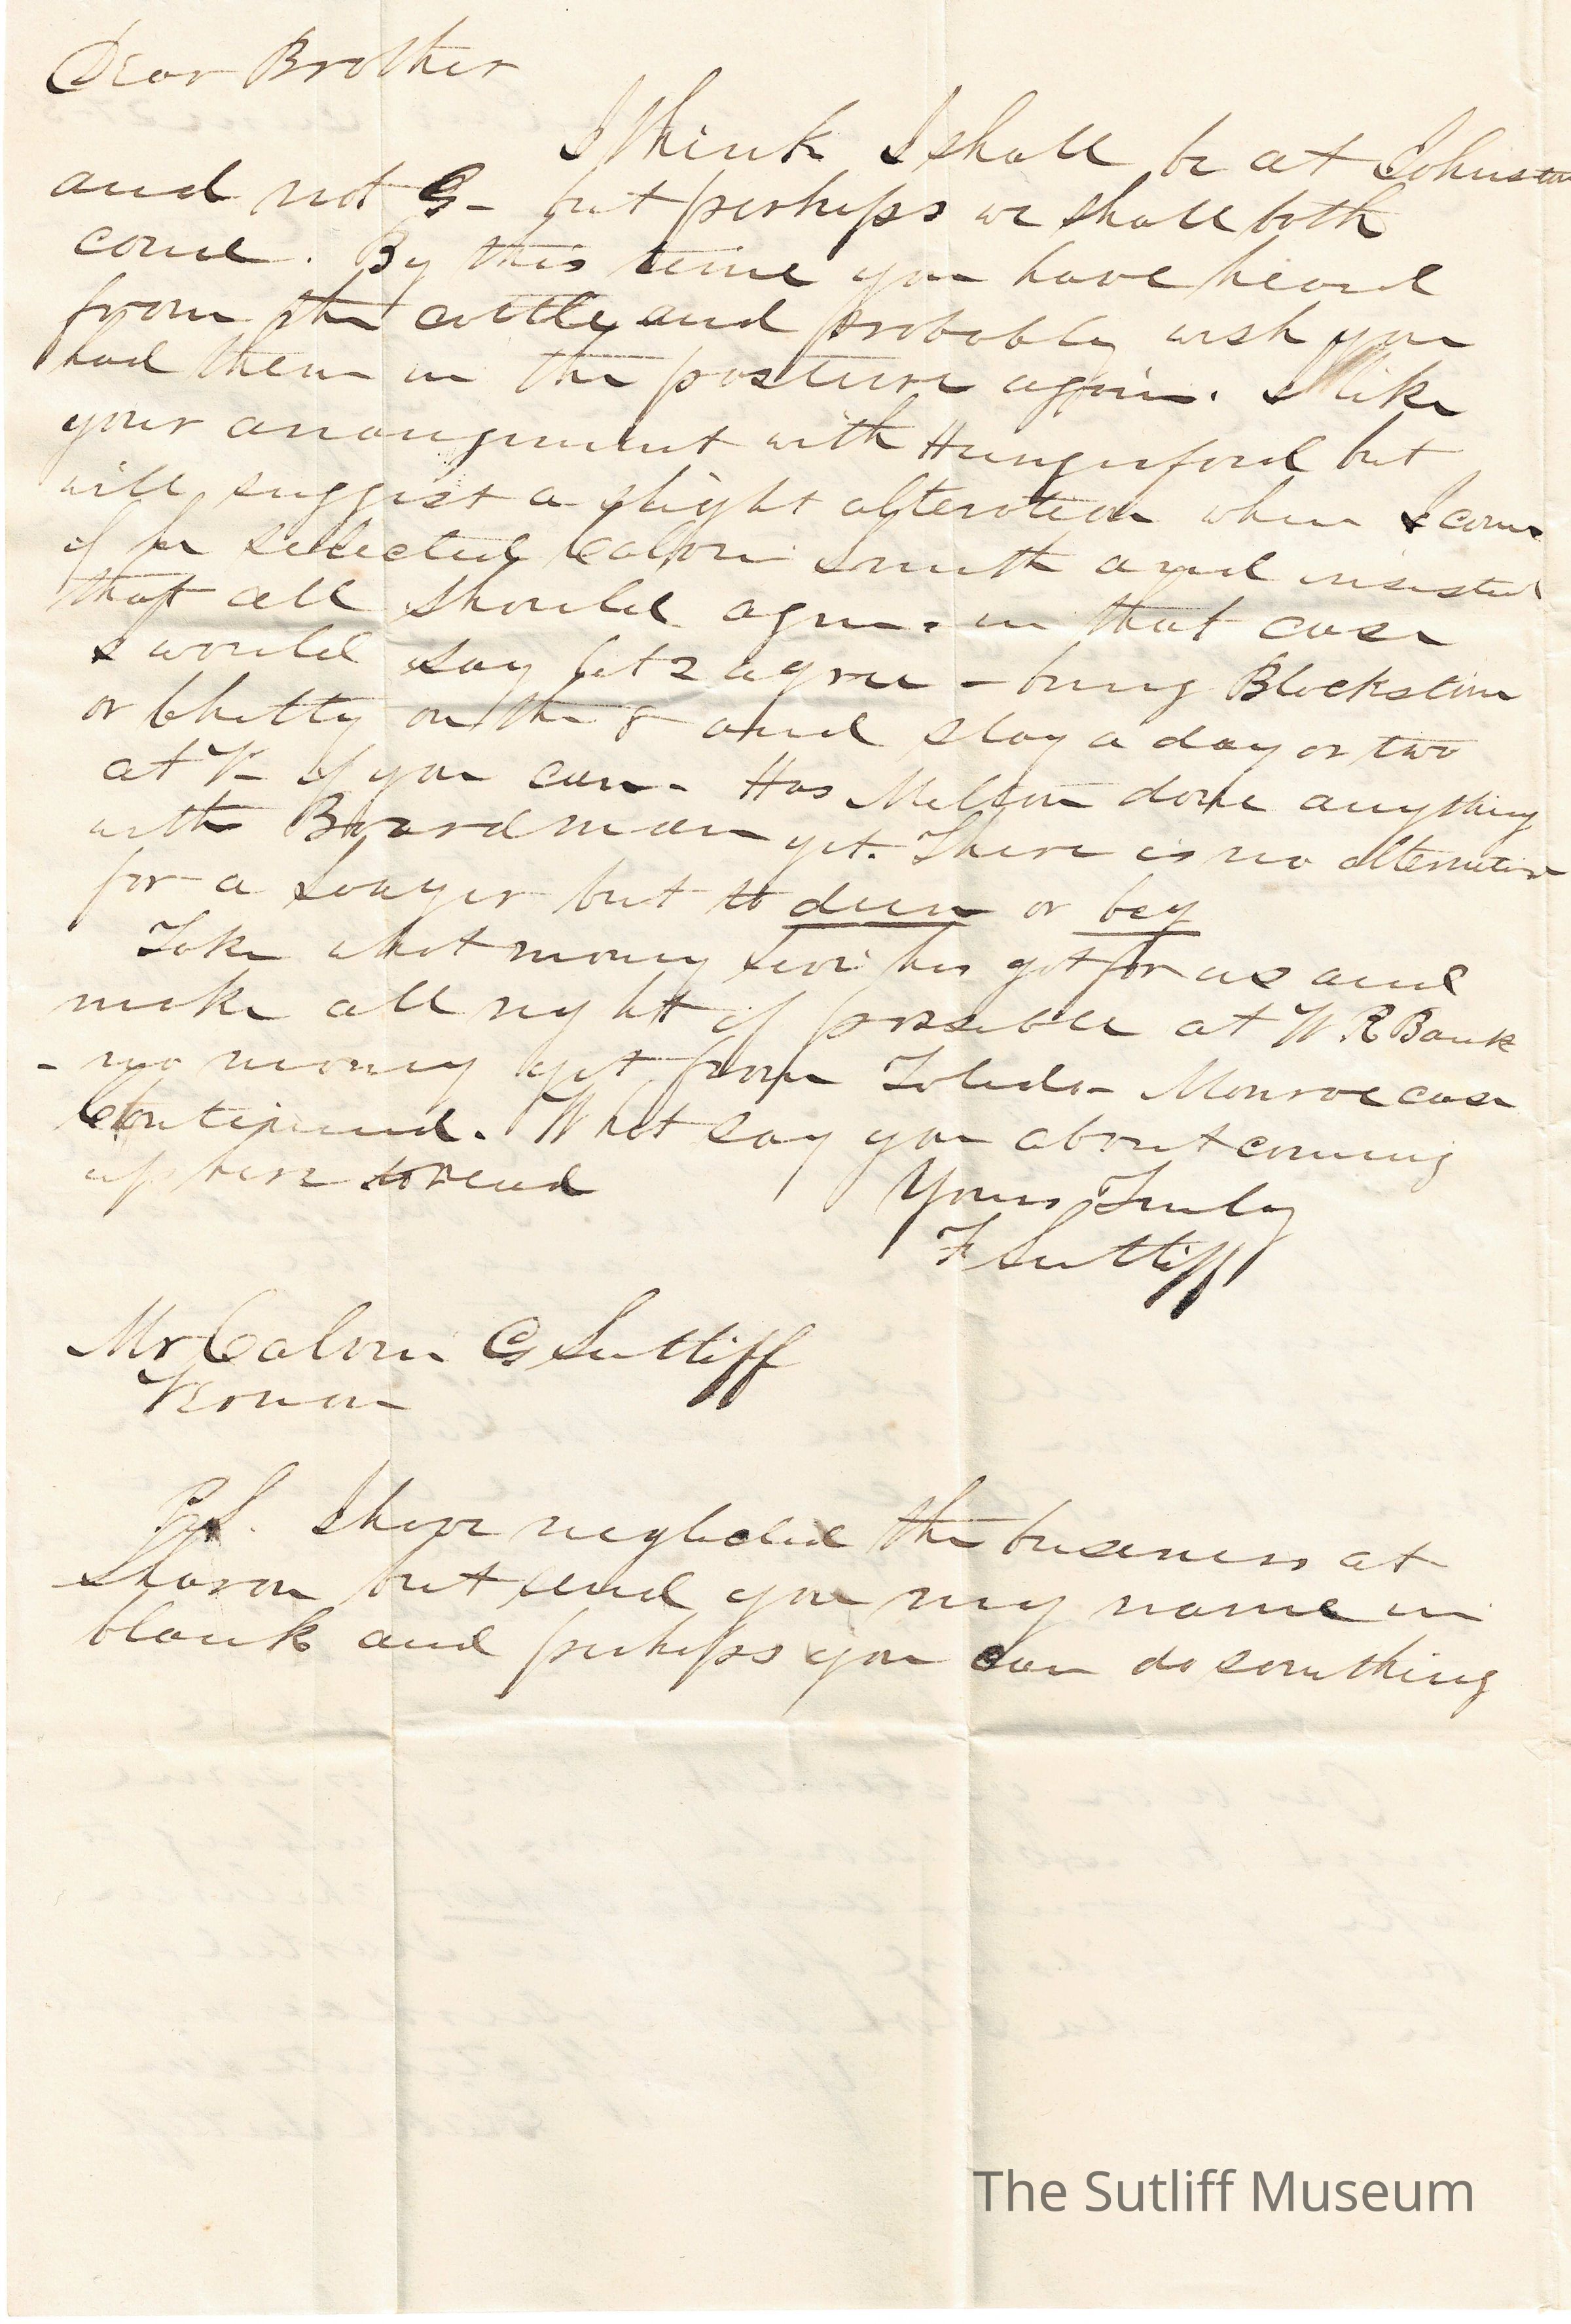 Dear Brother
I think I shall be at Johnston
and not G- but perhaps we shall both
come. By this time you have heard
from the cattle and probably wish you
had them in the pasture again. I like
your arrangement with Hungerford but
will suggest a slight alteration when I come
if he selected Calvin Smith and insisted
that all should agree. in that case
I would say let 2 agree - bring Blackstone
or Chitty on the 8 and stay a day or two
at V- if you can- Has Milton done anything
with Boardman yet. There is no alternative
for a lawyer but to dun or beg
Take what money Levi has got for us and
make all right if possible at W. R Bank
- no money yet from Toledo- Monroe case
Continued. What say you about coming
up here to read
Yours Truly
F Sutliff
Mr Calvin G Sutliff
Vernon
P.S. I have neglected the business at
Sharon but send you my name in
blank and perhaps you can do something
The Sutliff Museum